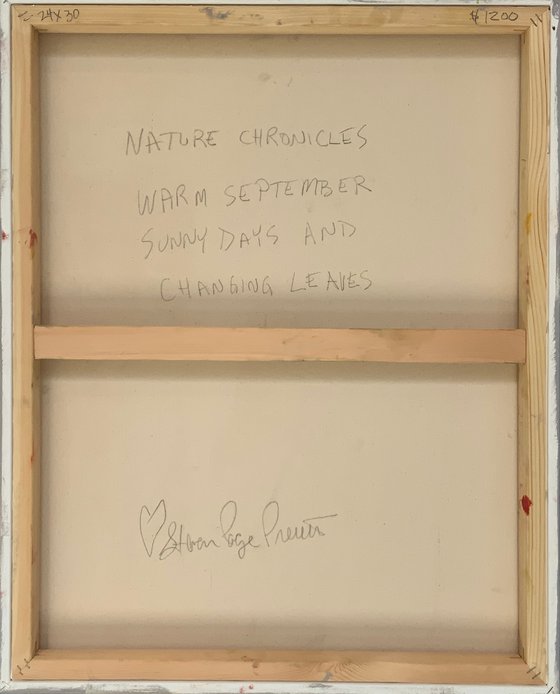 24X30
$1200
NATURE CHRONICLES
WARM SEPTEMBER
SUNNY DAYS AND
CHANGING LEAVES
Page